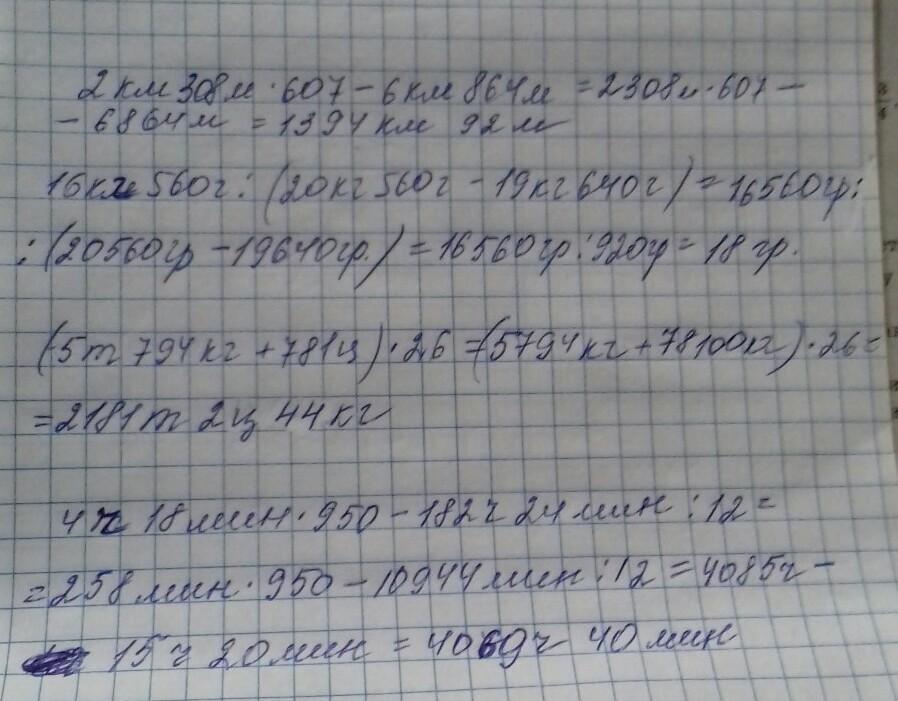 2 км 308 м · 607 - 6 км 864 м = 2308 м · 607 -
- 6864 м = 1394 км 92 м
16 кг 560 г : (20 кг 560 г - 19 кг 640 г) = 16560 гр :
: (20560 гр - 19640 гр.) = 16560 гр : 920 гр = 18 гр.
(5 т 794 кг + 781 ц) · 26 = (5794 кг + 78100 кг) · 26 =
= 2181 т 2 ц 44 кг
4 ч 18 мин · 950 - 182 ч 24 мин : 12 =
= 258 мин · 950 - 10944 мин : 12 = 4085 ч -
15 ч 20 мин = 4069 ч 40 мин